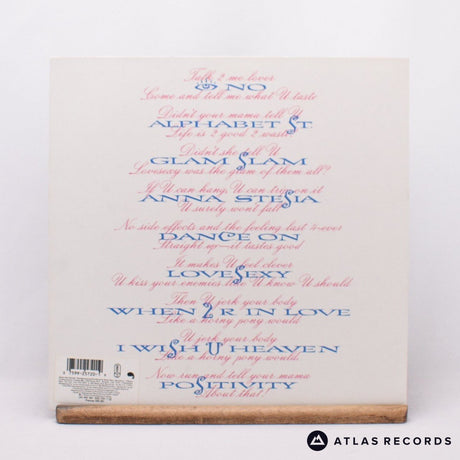 Talk 2 me lover
NO
Come and tell me what U taste
Didn't your mama tell U
ALPHABET ST.
Life is 2 good 2 waste
Didn't she tell U
GLAM SLAM
Lovesexy was the glam of them all?
If U can hang, U can trip on it
ANNA STESIA
U surely won't fall
No side effects and the feeling last 4-ever
DANCE ON
Straight up—it tastes good
It makes U feel clever
LOVESEXY
U kiss your enemies like U know U should
Then U jerk your body
WHEN 2 R IN LOVE
Like a horny pony would
U jerk your body
I WISH U HEAVEN
Like a horny pony would
Now run and tell your mama
POSITIVITY
About that!
ATLAS RECORDS